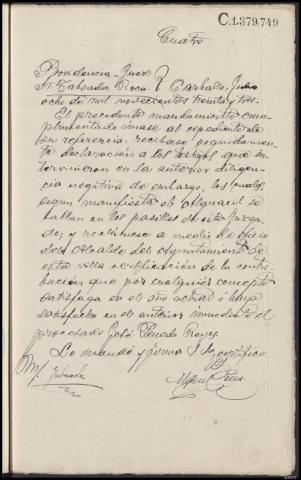 C.1.379.749
Cuatro
Providencia-Juez
Sr. Taboada Roca. } Carballo, Julio
ocho de mil novecientos treinta y tres.
El precedente mandamiento cum-
plimentado únase al expediente de
su referencia; recíbase seguidamen-
te declaración a los testigos que in-
tervinieron en la anterior diligen-
cia negativa de embargo, los cuales,
según manifiesta el Alguacil se
hallan en los pasillos de este Juzga-
do; y reclámese a medio de oficio
del Alcalde del Ayuntamiento de
esta villa certificación de la contri-
bución que por cualquier concepto
satisfaga en el año actual o haya
satisfecho en el anterior inmediato el
procesado José Penedo Reyes.
Lo mandó y firma S.Sa, certifico
M. Taboada